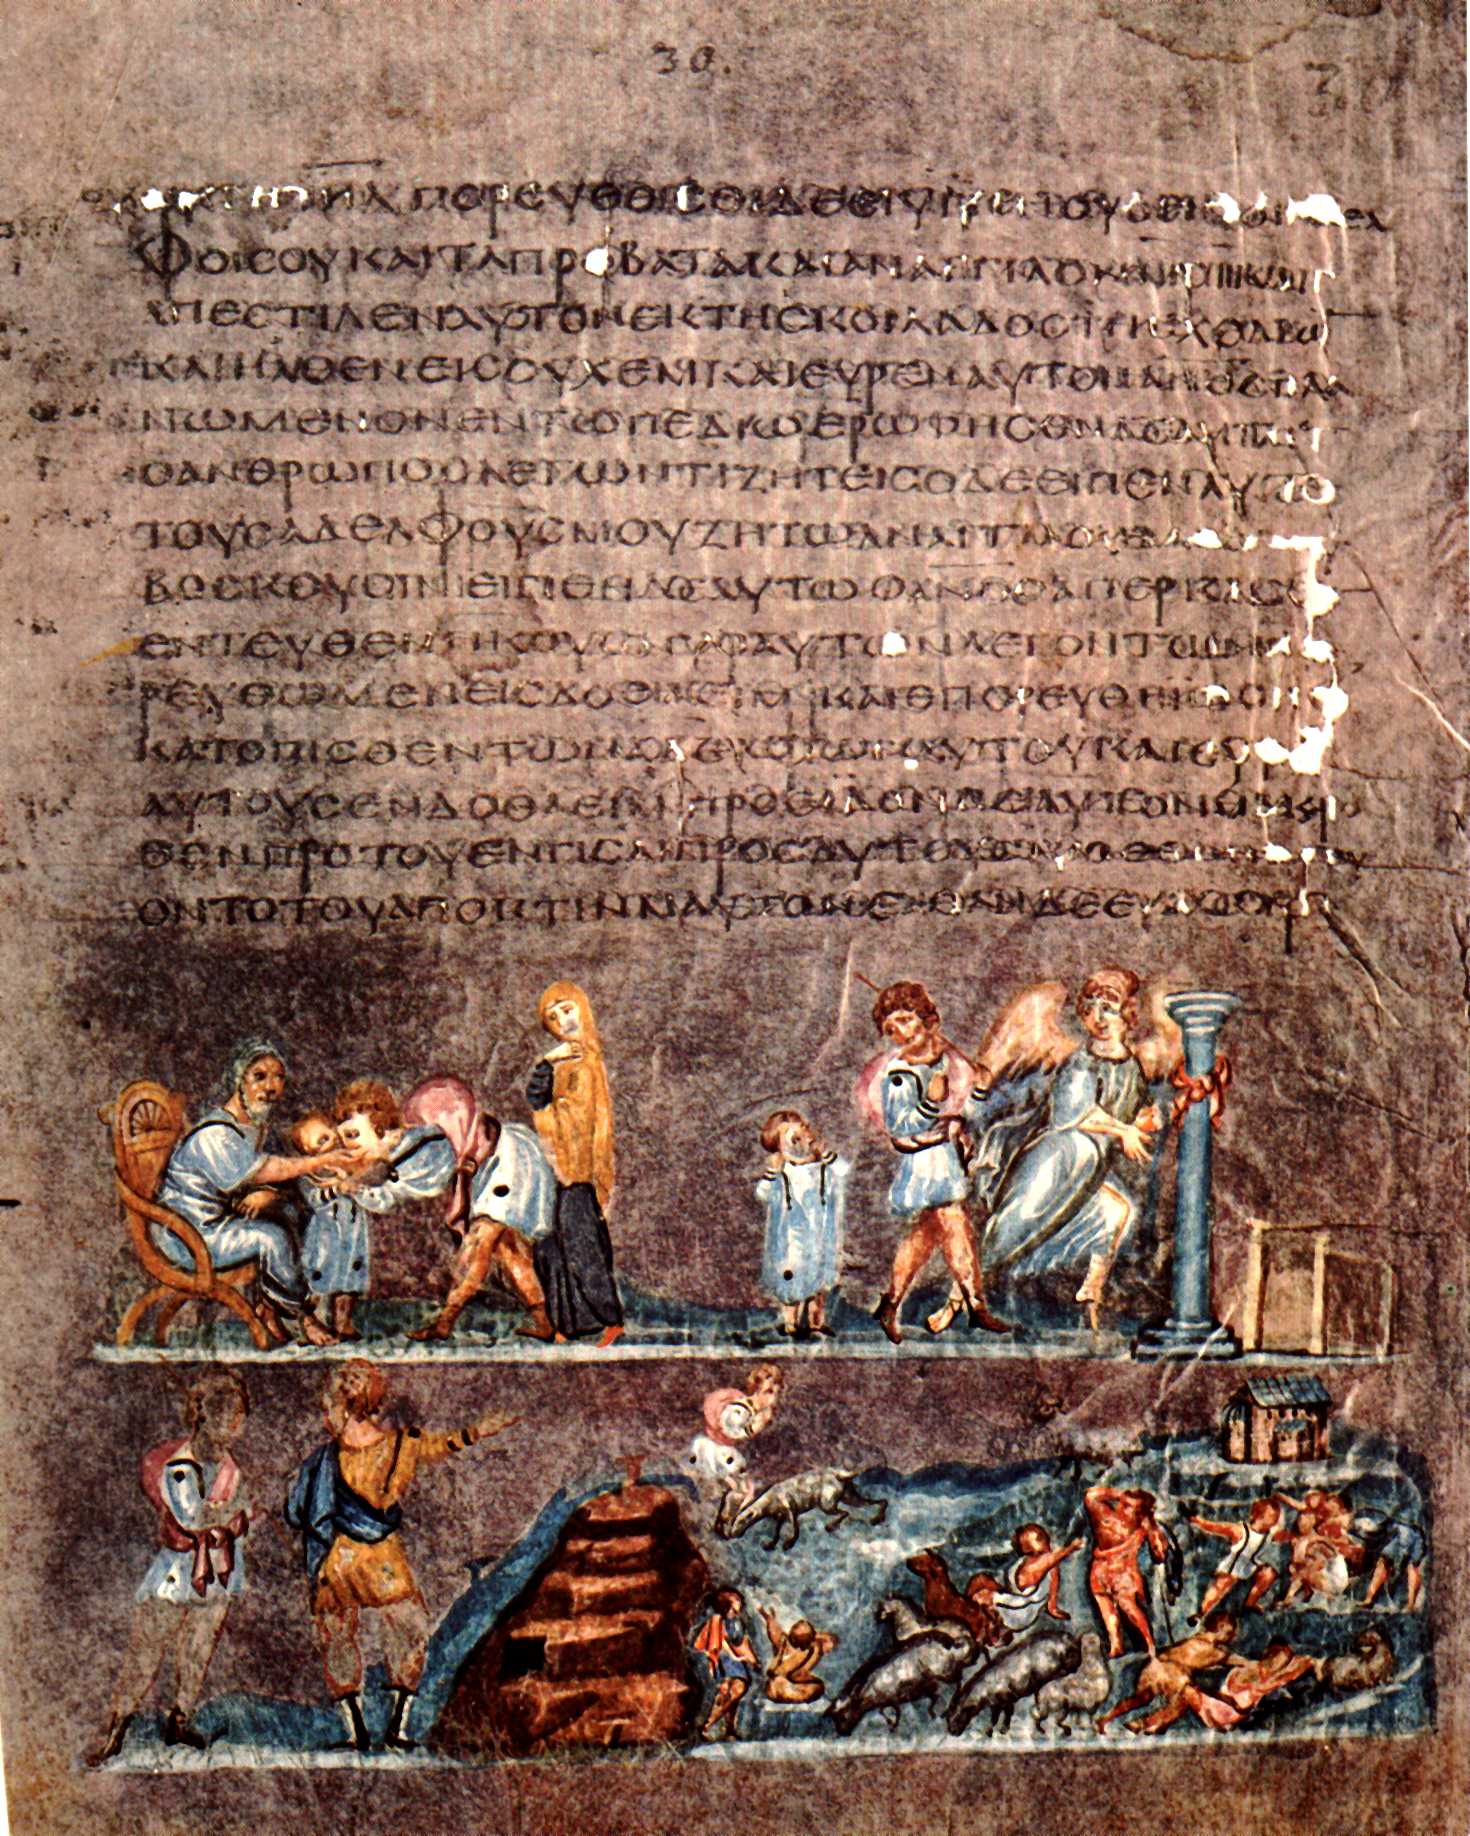 30.
ΠΟΡΕΥΘΕΙCΘΙΔΕΕΙ
ΦΟΙCΟΥΚΑΙΤΑΠΡΟΒΑΤΑΚΑΙΑΝΑΓΓΙΛΟΝ
ΑΠΕCΤΙΛΕΝΑΥΤΟΝΕΚΤΗCΚΟΙΛΑΔΟCΤΗCΧΕΒΡΩ
ΚΑΙΗΛΘΕΝΕΙCΟΥΧΕΜΚΑΙΕΥΡΕΝΑΥΤΟΝΑΝΟCΠΛΑ
ΝΩΜΕΝΟΝΕΝΤΩΠΕΔΙΩΕΡΩΤΗCΕΝΔΕΑΥΤΟ
ΟΑΝΘΡΩΠΟCΛΕΓΩΝΤΙΖΗΤΕΙCΟΔΕΕΙΠΕΝΑΥΤΩ
ΤΟΥCΑΔΕΛΦΟΥCΜΟΥΖΗΤΩ
ΒΟCΚΟΥCΙΝΕΙΠΕΝΔΕΑΥΤΩΟΑΝΟCΑΠΕΡΚΑCΙ
ΕΝΤΕΥΘΕΝΗΚΟΥCΑΓΑΡΑΥΤΩΝΛΕΓΟΝΤΩΝΠΟ
ΡΕΥΘΩΜΕΝΕΙCΔΟΘΑΕΙΜΚΑΙΕΠΟΡΕΥΘΗΙΩCΗΦ
ΚΑΤΟΠΙCΘΕΝΤΩΝΑΔΕΛΦΩΝΑΥΤΟΥΚΑΙΕΥΡΕΝ
ΑΥΤΟΥCΕΝΔΟΘΑΕΙΜΠΡΟΕΙΔΟΝΔΕΑΥΤΟΝΜΑΚΡΟ
ΘΕΝΠΡΟΤΟΥΕΝΓΙCΑΙΠΡΟCΑΥΤΟΥC
ΟΝΤΟΤΟΥΑΠΟΚΤΙΝΑΙΑΥΤΟΝΕΙΠΑΝΔΕ